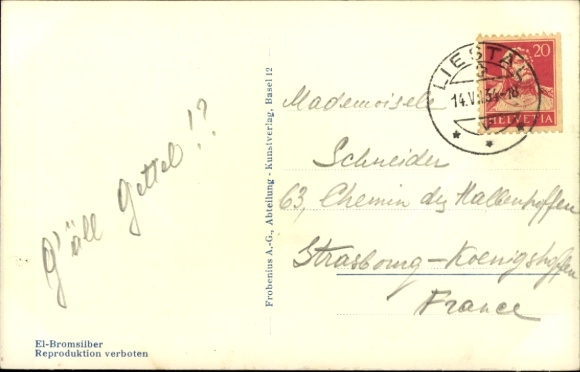 G'äll Gettel!?
El-Bromsilber
Reproduktion verboten
Frobenius A.-G., Abteilung - Kunstverlag, Basel 12
20
HELVETIA
LIESTAL
Mademoisele
Schneider
63, Chemin des Halbenhoffen
Strasbourg-Koenigshoffen
France